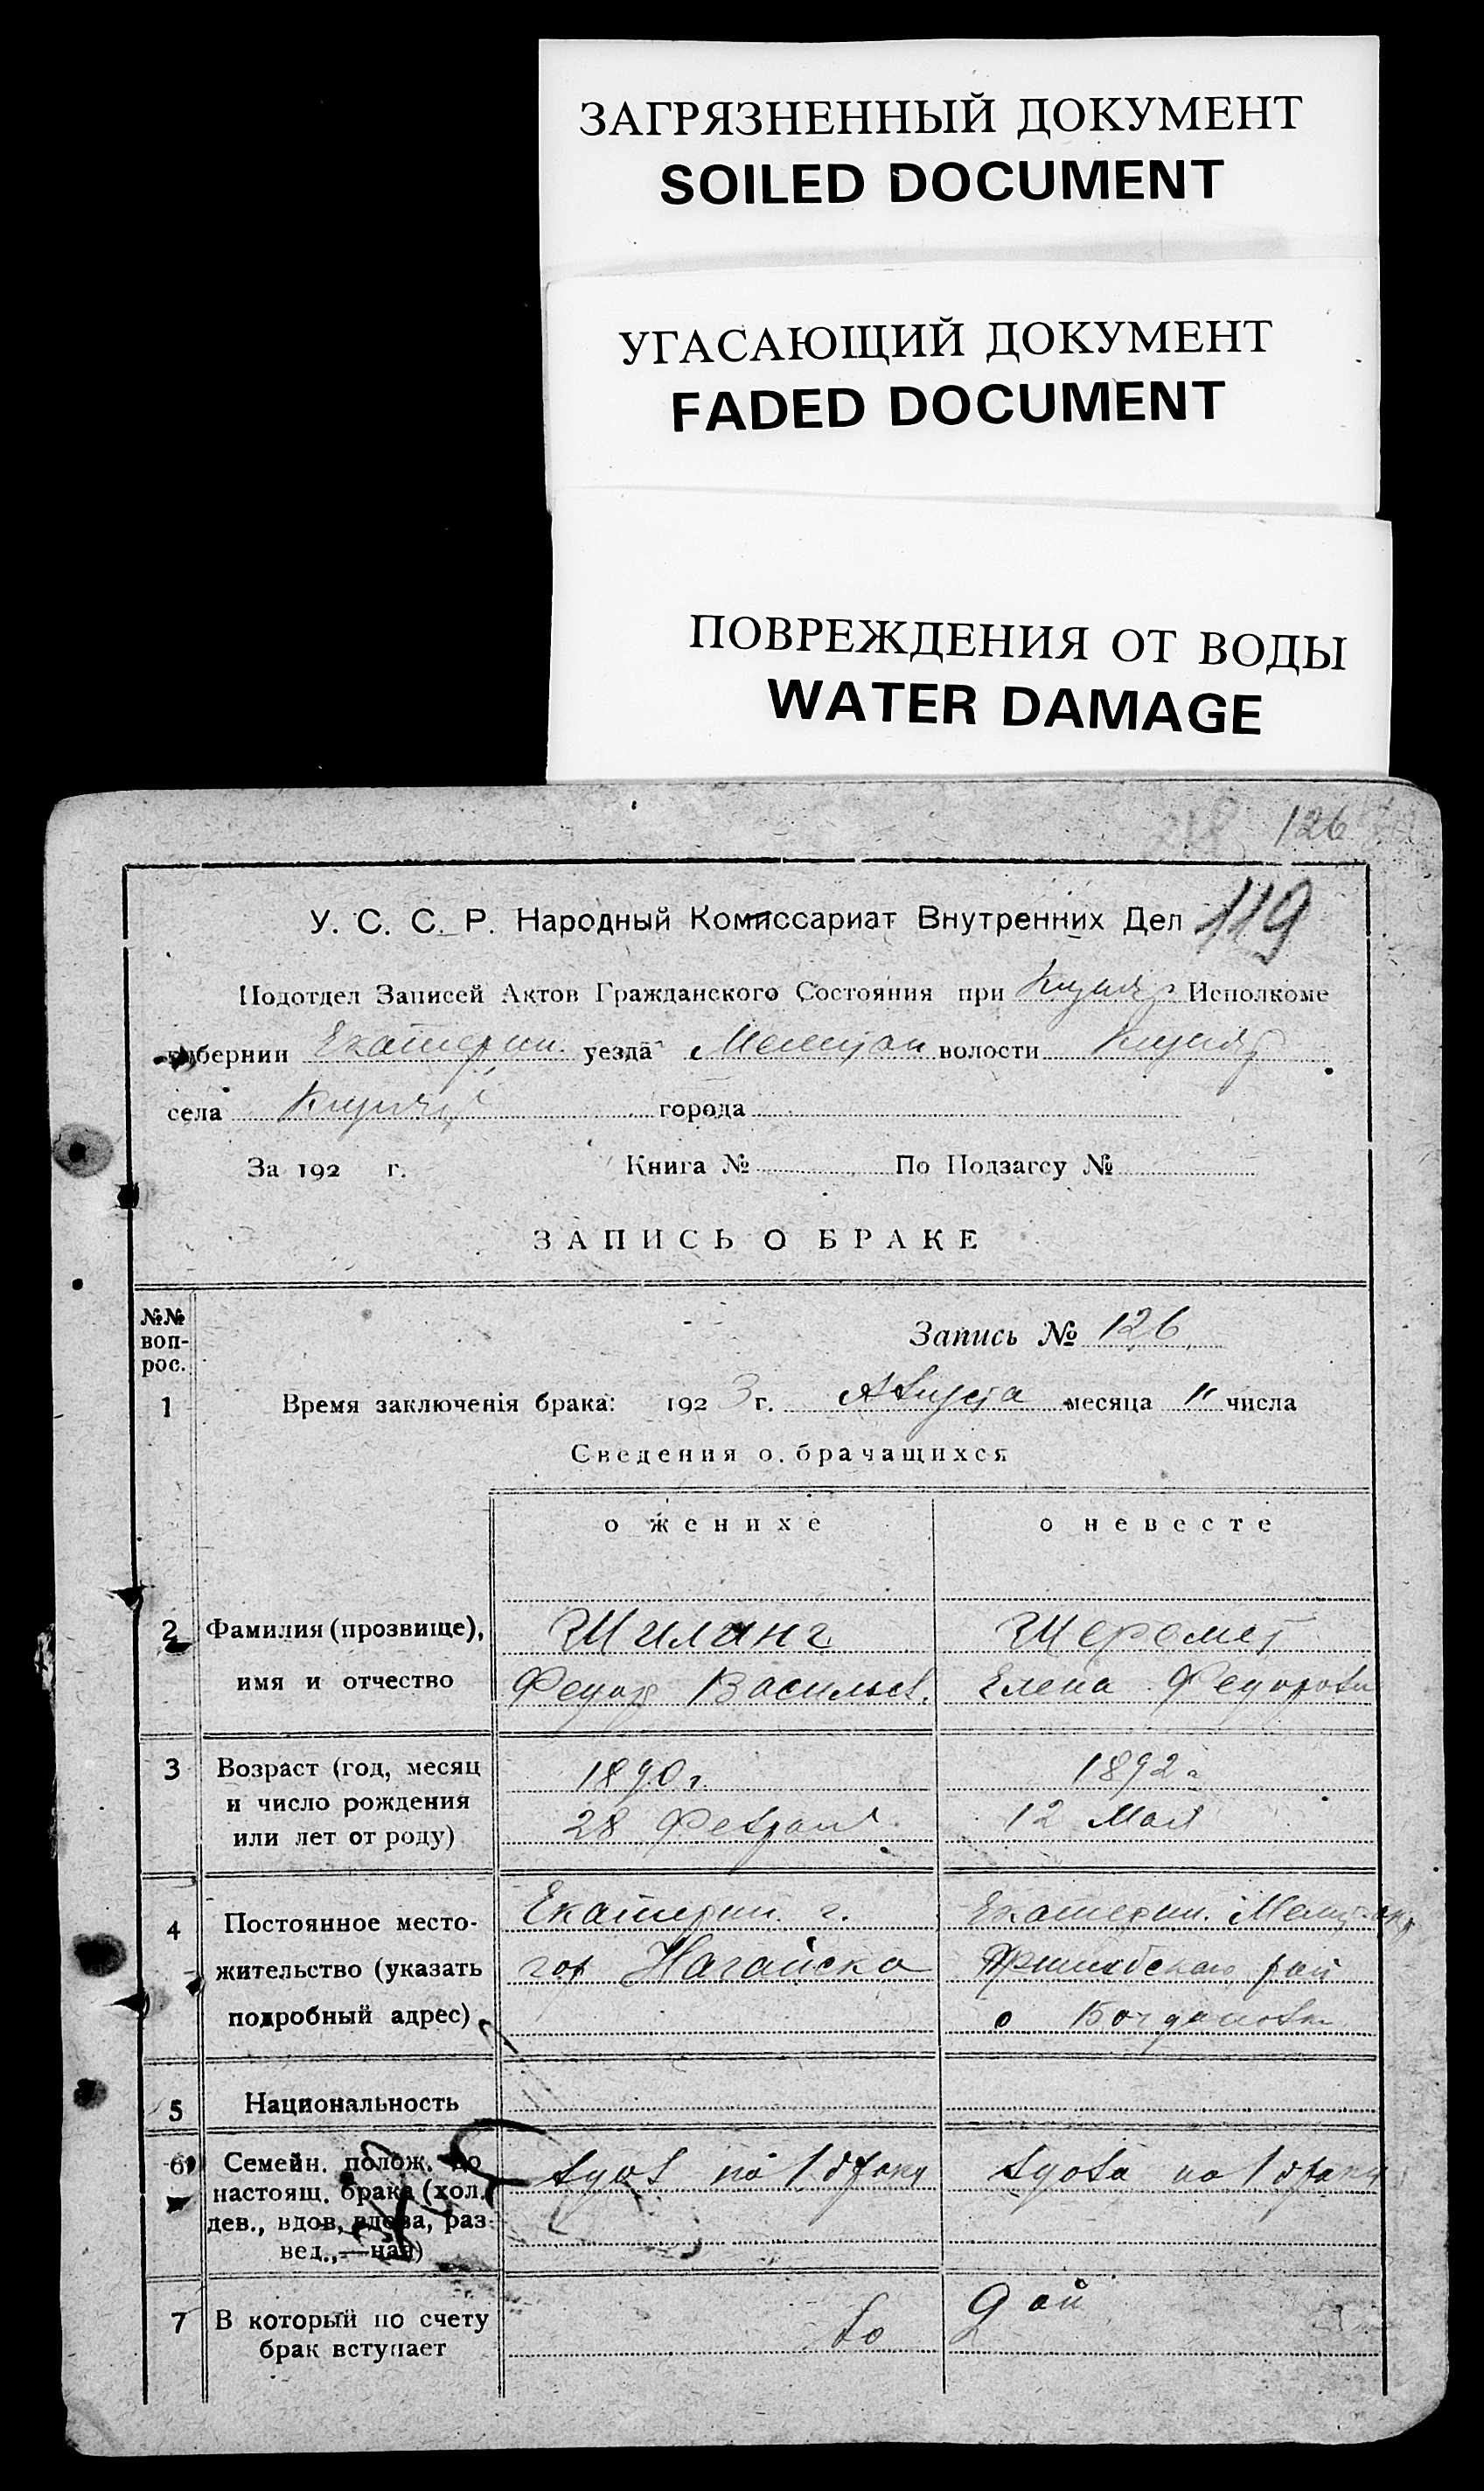 ЗАГРЯЗНЕННЫЙ ДОКУМЕНТ
SOILED DOCUMENT
УГАСАЮЩИЙ ДОКУМЕНТ
FADED DOCUMENT
ПОВРЕЖДЕНИЯ ОТ ВОДЫ
WATER DAMAGE
126
119
У. С. С. Р. Народный Комиссариат Внутренних Дел
Подотдел Записей Актов Гражданского Состояния при Исполкоме
губернии Екатерин. уезда Мелитоп волости
села города
За 192 г. Книга № По Подзагсу №
ЗАПИСЬ О БРАКЕ
№№ вопрос.
Запись № 126
1 Время заключенія брака: 1923 г. Августа месяца 11 числа
Сведения о брачащихся
о женихе о невесте
2 Фамилия (прозвище), Шилинг Шеремет
имя и отчество Федор Васильев. Елена Федоровн
3 Возраст (год, месяц 1890 г. 1892 г
и число рождения 28 Феврал 12 Мая
или лет от роду)
4 Постоянное место- Екатерин. г. Екатерин. Мелит. окр
жительство (указать гор Нагайска рай
подробный адрес) с Богдановка
5 Национальность
6 Семейн. полож. до вдов по 1 браку вдова по 1 браку
настоящ. брака (хол.,
дев., вдов, вдова, раз-
вед.,—ная)
7 В который по счету во 2 ой
брак вступает